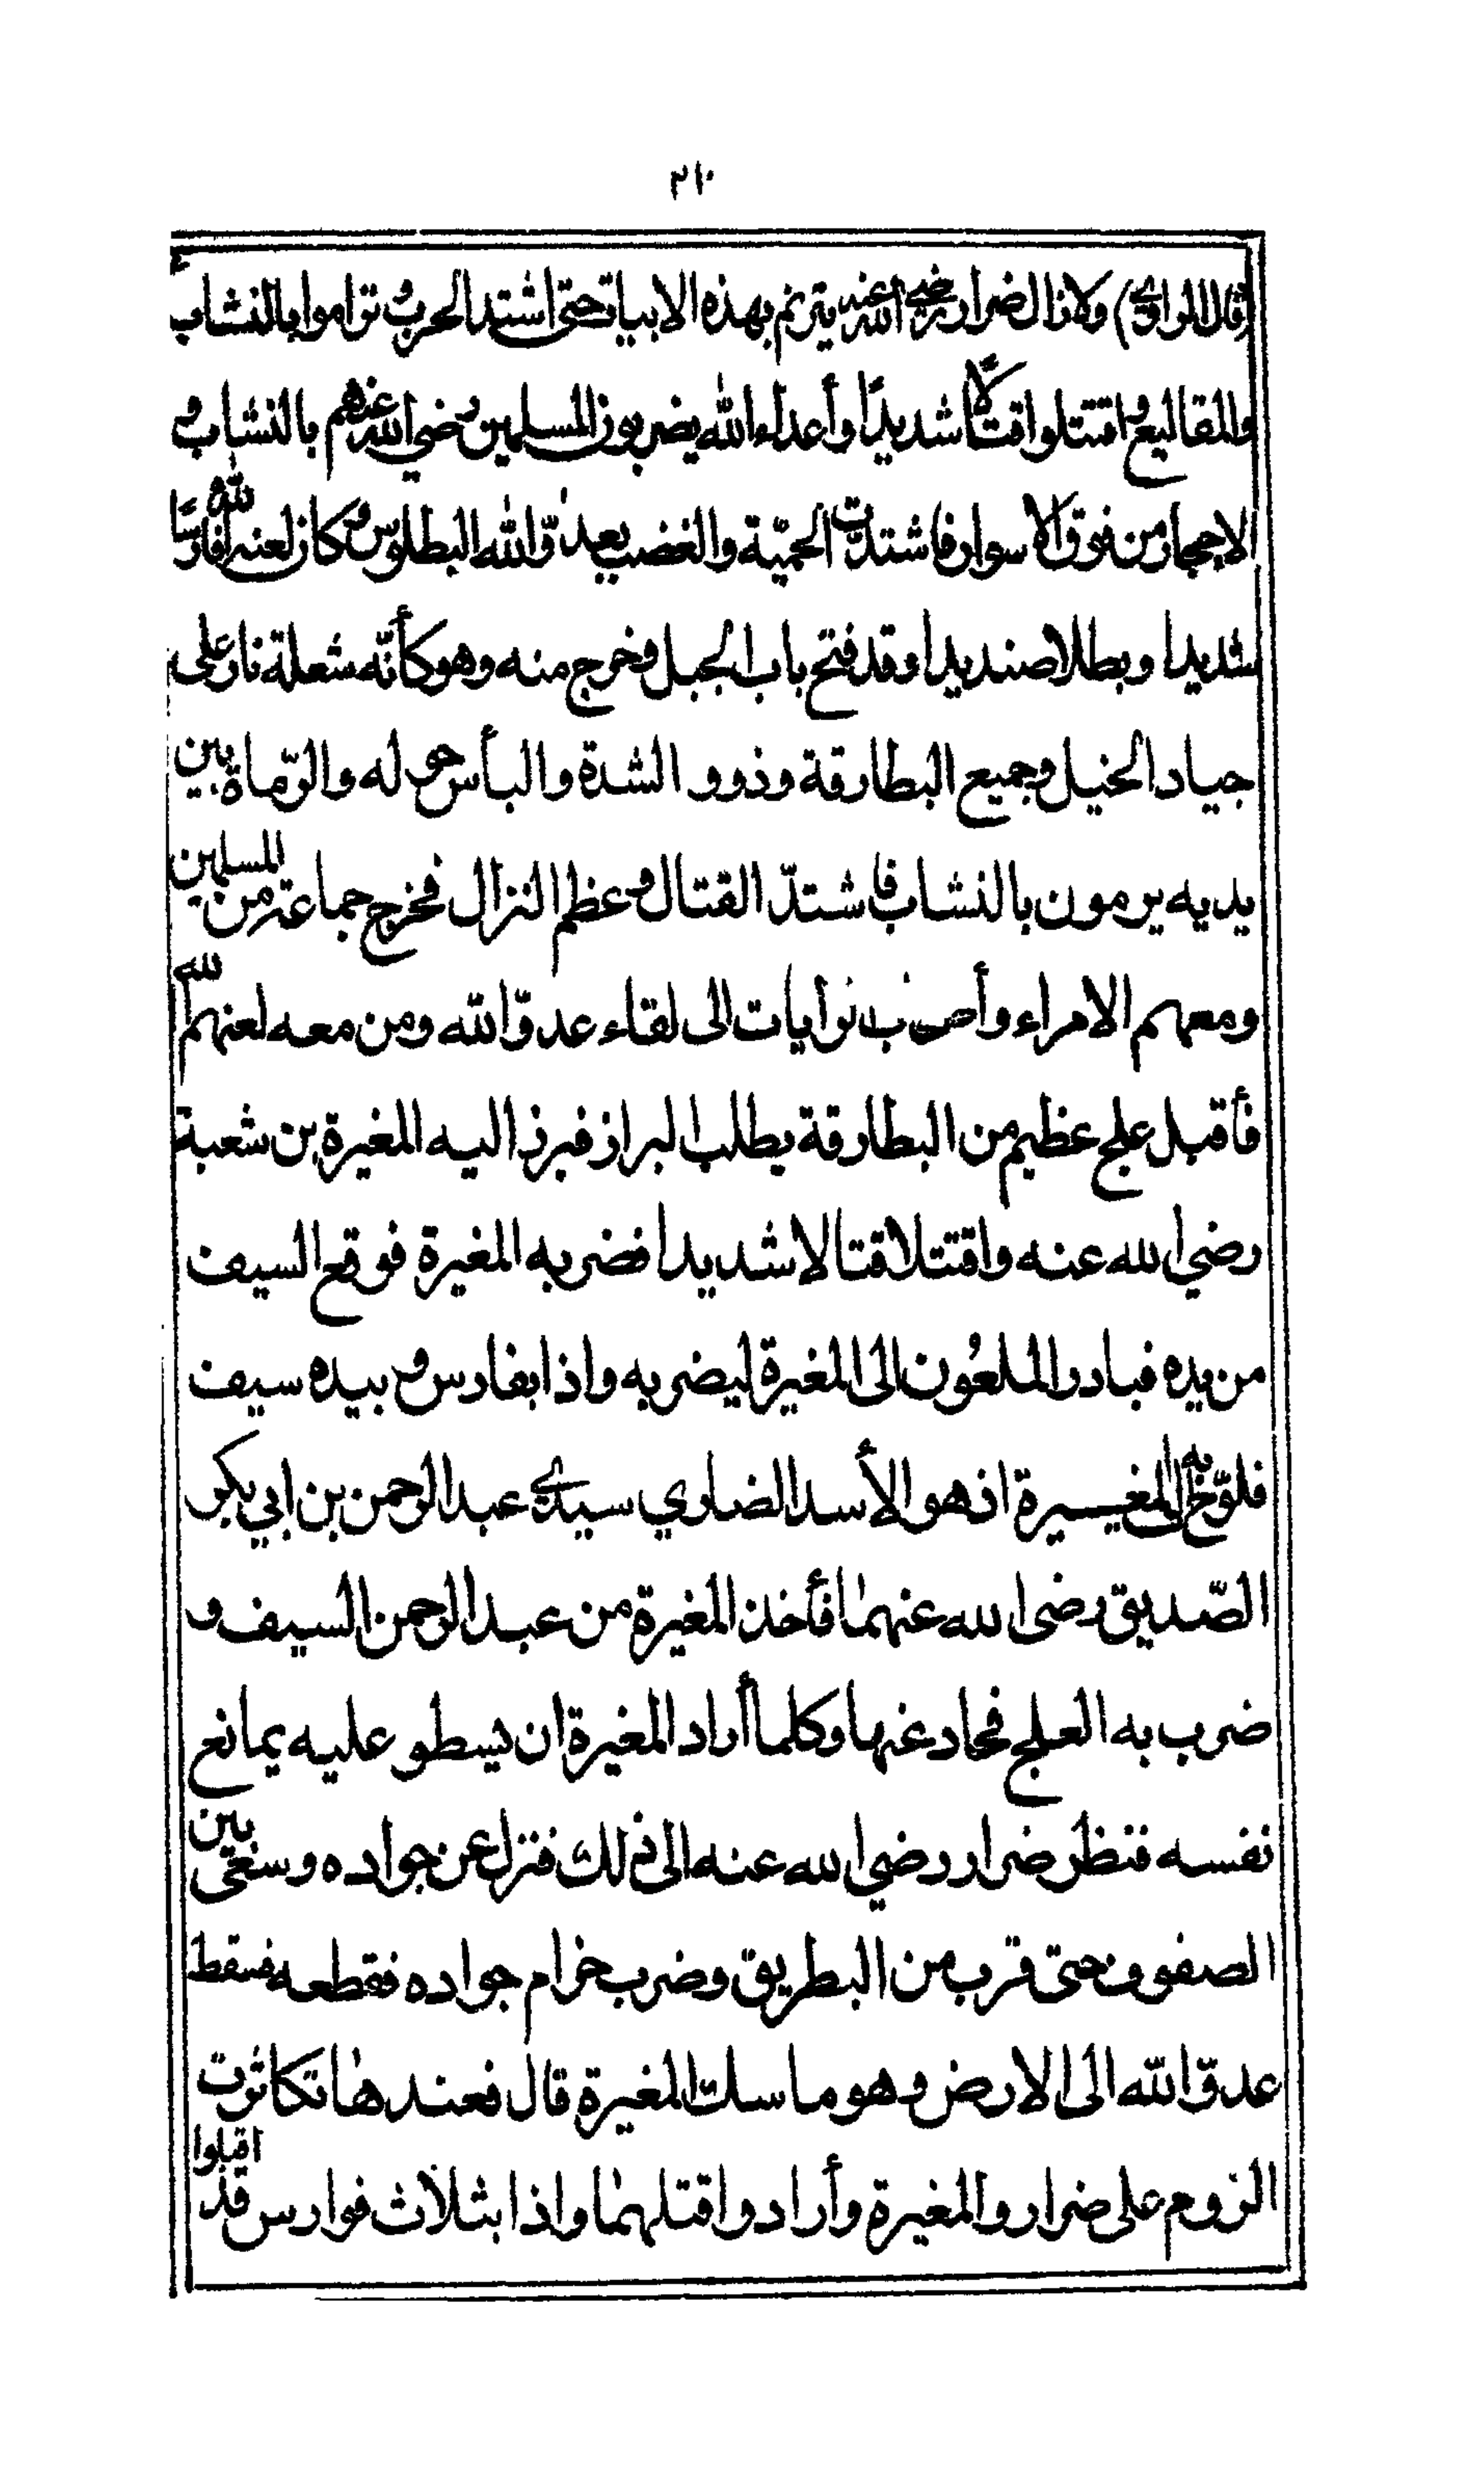 ٢١٠
(قال الواقدي) ولا زال ضرار رضي الله عنه يترنم بهذه الابيات حتى اشتد الحرب و تراموا بالنشاب
والمقاليع و اقتتلوا قتالًا شديدًا وأعداء الله يضربون المسلمين رضي الله عنهم بالنشاب و
الاحجار من فوق الاسوار فاشتدت الحميّة والغضب بعدوّ الله البطلوس و كان لعنه الله فارسًا
شديدا وبطلا صنديدا وقد فتح باب الجبل وخرج منه وهو كأنّه شعلة نار على
جياد الخيل وجميع البطارقة وذوو الشدة والبأس حوله والرّماة بين
يديه يرمون بالنشاب فاشتدّ القتال و عظم النزال فخرج جماعة من المسلمين
ومعهم الامراء وأصحاب الرايات الى لقاء عدوّ الله ومن معه لعنهم الله
فأقبل علج عظيم من البطارقة يطلب البراز فبرز اليه المغيرة بن شعبة
رضي الله عنه واقتتلا قتالا شديدا فضربه المغيرة فوقع السيف
من يده فبادر الملعُون الى المغيرة ليضربه واذا بفارس و بيده سيف
فلوّح به الى المغيرة اذ هو الأسد الضاري سيدي عبد الرحمن بن ابي بكر
الصّديق رضى الله عنهما فأخذ المغيرة من عبد الرحمن السيف و
ضرب به العلج فحاد عنها وكلما أراد المغيرة ان يسطو عليه يمانع
نفسه فنظر ضرار رضي الله عنه الى ذلك فنزل عن جواده وسعى بين
الصفوف حتى قرب من البطريق وضرب حزام جواده فقطعه فسقط
عدوّ الله الى الارض وهو ماسك المغيرة قال فعندها تكاثرت
الروم على ضرار والمغيرة وأرادوا قتلهما واذا بثلاث فوارس قد اقبلوا